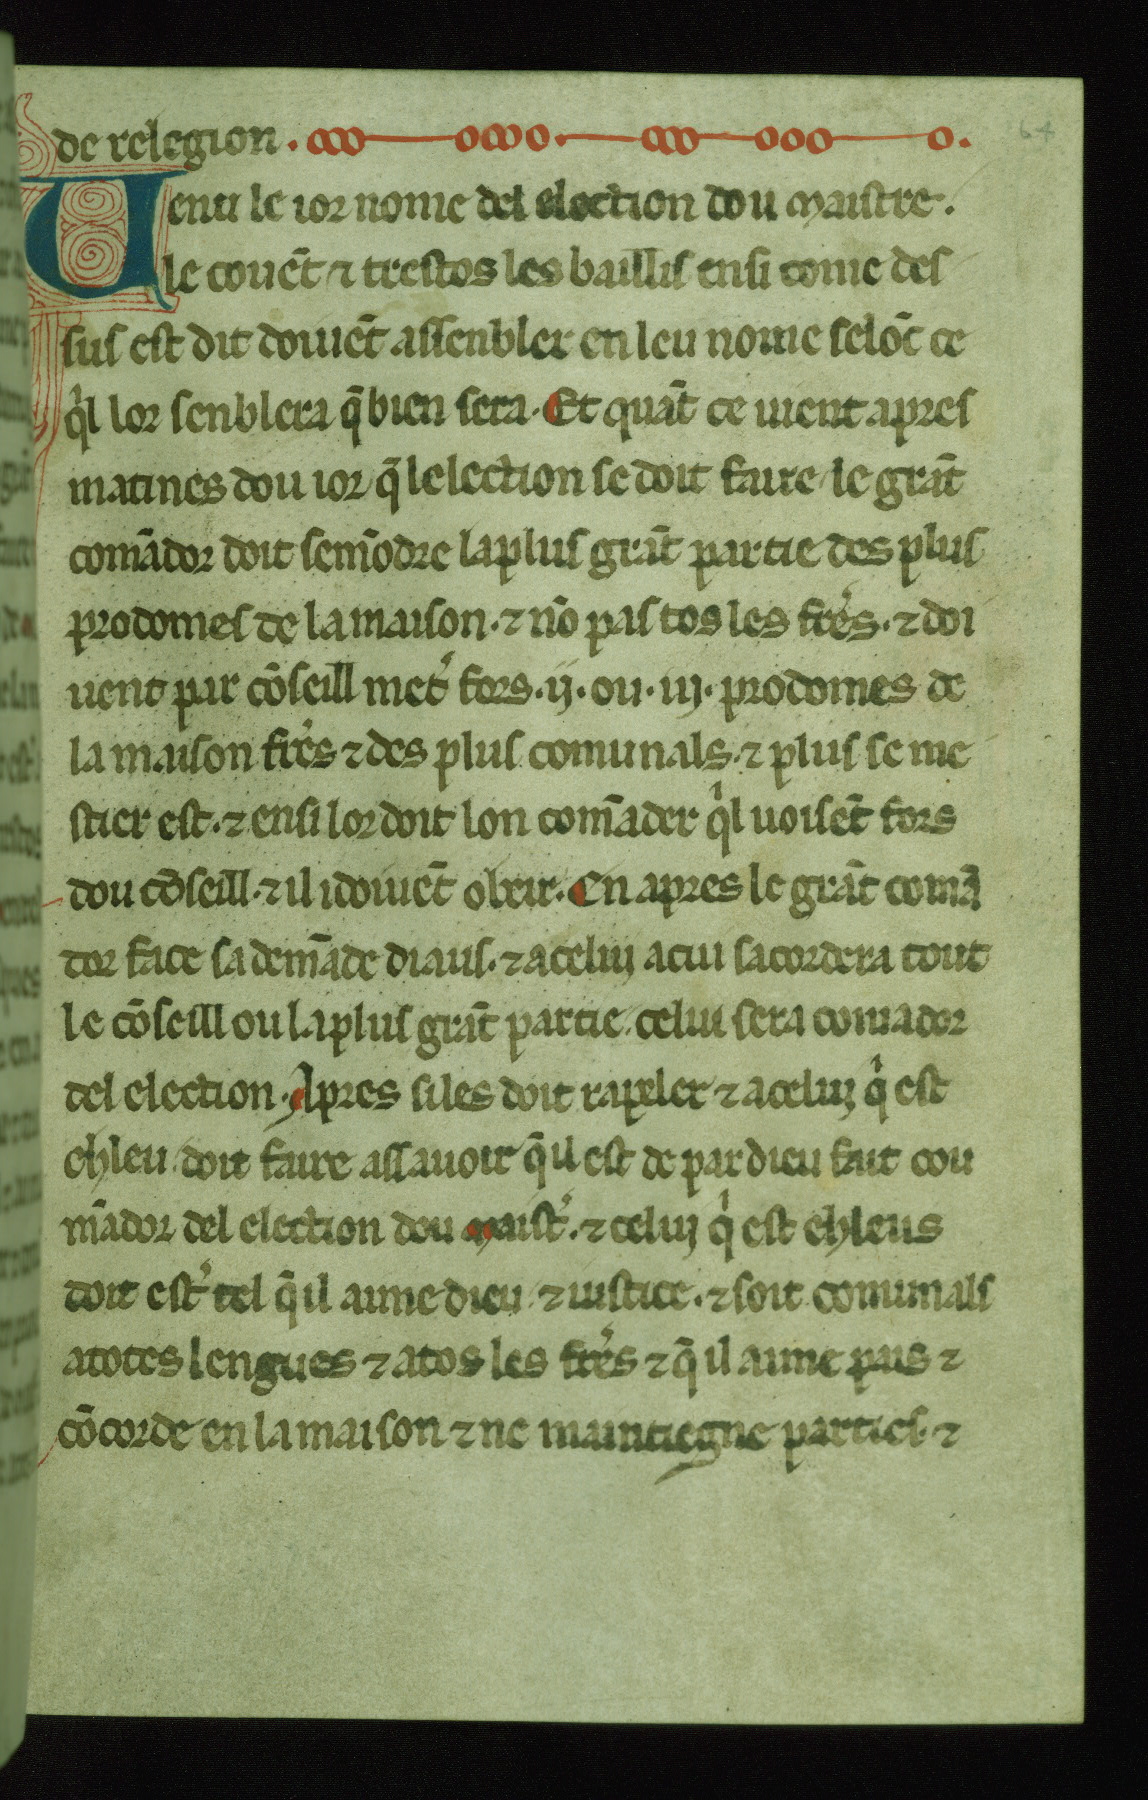 de relegion.
Uenu le ior nome del election dou maistre.
le couēt ⁊ trestos les baillis ensi come des
sus est dit doiuēt assenbler en leu nome selōc ce
qͥl lor senblera q̄ bien sera. Et quāt ce uient apres
matines dou ior q̄ lelection se doit faire le grāt
comādor doit semōdre la plus grāt partie des plus
prodomes de la maison. ⁊ nō pas tos les fr̄es. ⁊ doi
uent par cōseill met̾ fors .ij. ou .iij. prodomes de
la maison fr̄es ⁊ des plus comunals. ⁊ plus se me
stier est. ⁊ ensi lor doit lon comāder qͥl uoisēt fors
dou cōseill. ⁊ il i doiuēt obeir. En apres le grāt comā
dor face sa demāde diaus. ⁊ a celuj a cui sacordera tout
le cōseill ou la plus grāt partie. celui sera comador
del election. Apres si les doit rapeler ⁊ a celuj qͥ est
ehleu doit faire assauoir q̄ il est de par dieu fait cou
mādor del election dou maist̾. ⁊ celuj qͥ est ehleus
doit est̾ tel q̄ il aime dieu ⁊ iustice. ⁊ soit comunals
a totes lengues ⁊ a tos les fr̄es ⁊ q̄ il aime pais ⁊
cōcorde en la maison ⁊ ne maintiegne parties. ⁊